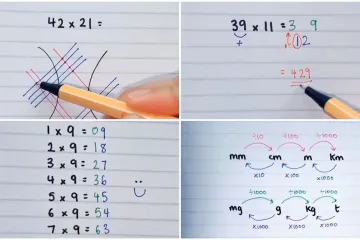 42 × 21 =
39 × 11 = 3 9
+ 12
= 429
1 × 9 = 09
2 × 9 = 18
3 × 9 = 27
4 × 9 = 36
5 × 9 = 45
6 × 9 = 54
7 × 9 = 63
÷10 ÷100 ÷1000
mm cm m km
×10 ×100 ×1000
÷1000 ÷1000 ÷1000
mg g kg t
×1000 ×1000 ×1000